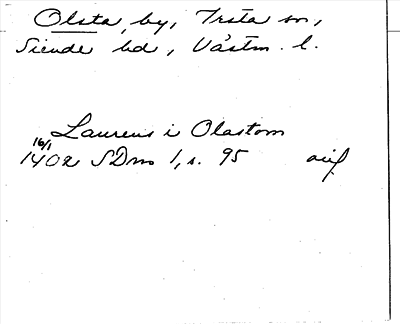 Olsta by, Irsta sn,
Siende hd, Västm. l.
Laurens i Olastom
16/1
1402 SDns 1, s. 95 avsk